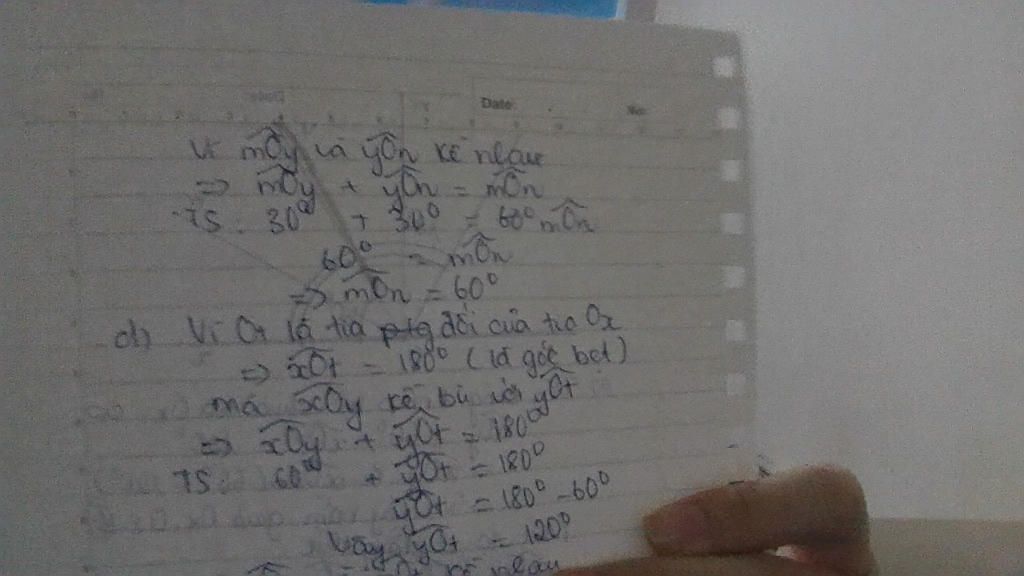 Date:
No:
Vì m̂Oy và ŷOn kề nhau
=> m̂Oy + ŷOn = m̂On
TS: 30⁰ + 30⁰ = 60⁰ m̂On
60⁰ = m̂On
=> m̂On = 60⁰
d) Vì Ot là tia đối của tia Ox
=> x̂Ot = 180⁰ (là góc bẹt)
mà x̂Oy kề bù với ŷOt
=> x̂Oy + ŷOt = 180⁰
TS: 60⁰ + ŷOt = 180⁰
ŷOt = 180⁰ - 60⁰
Vậy ŷOt = 120⁰
kề nhau